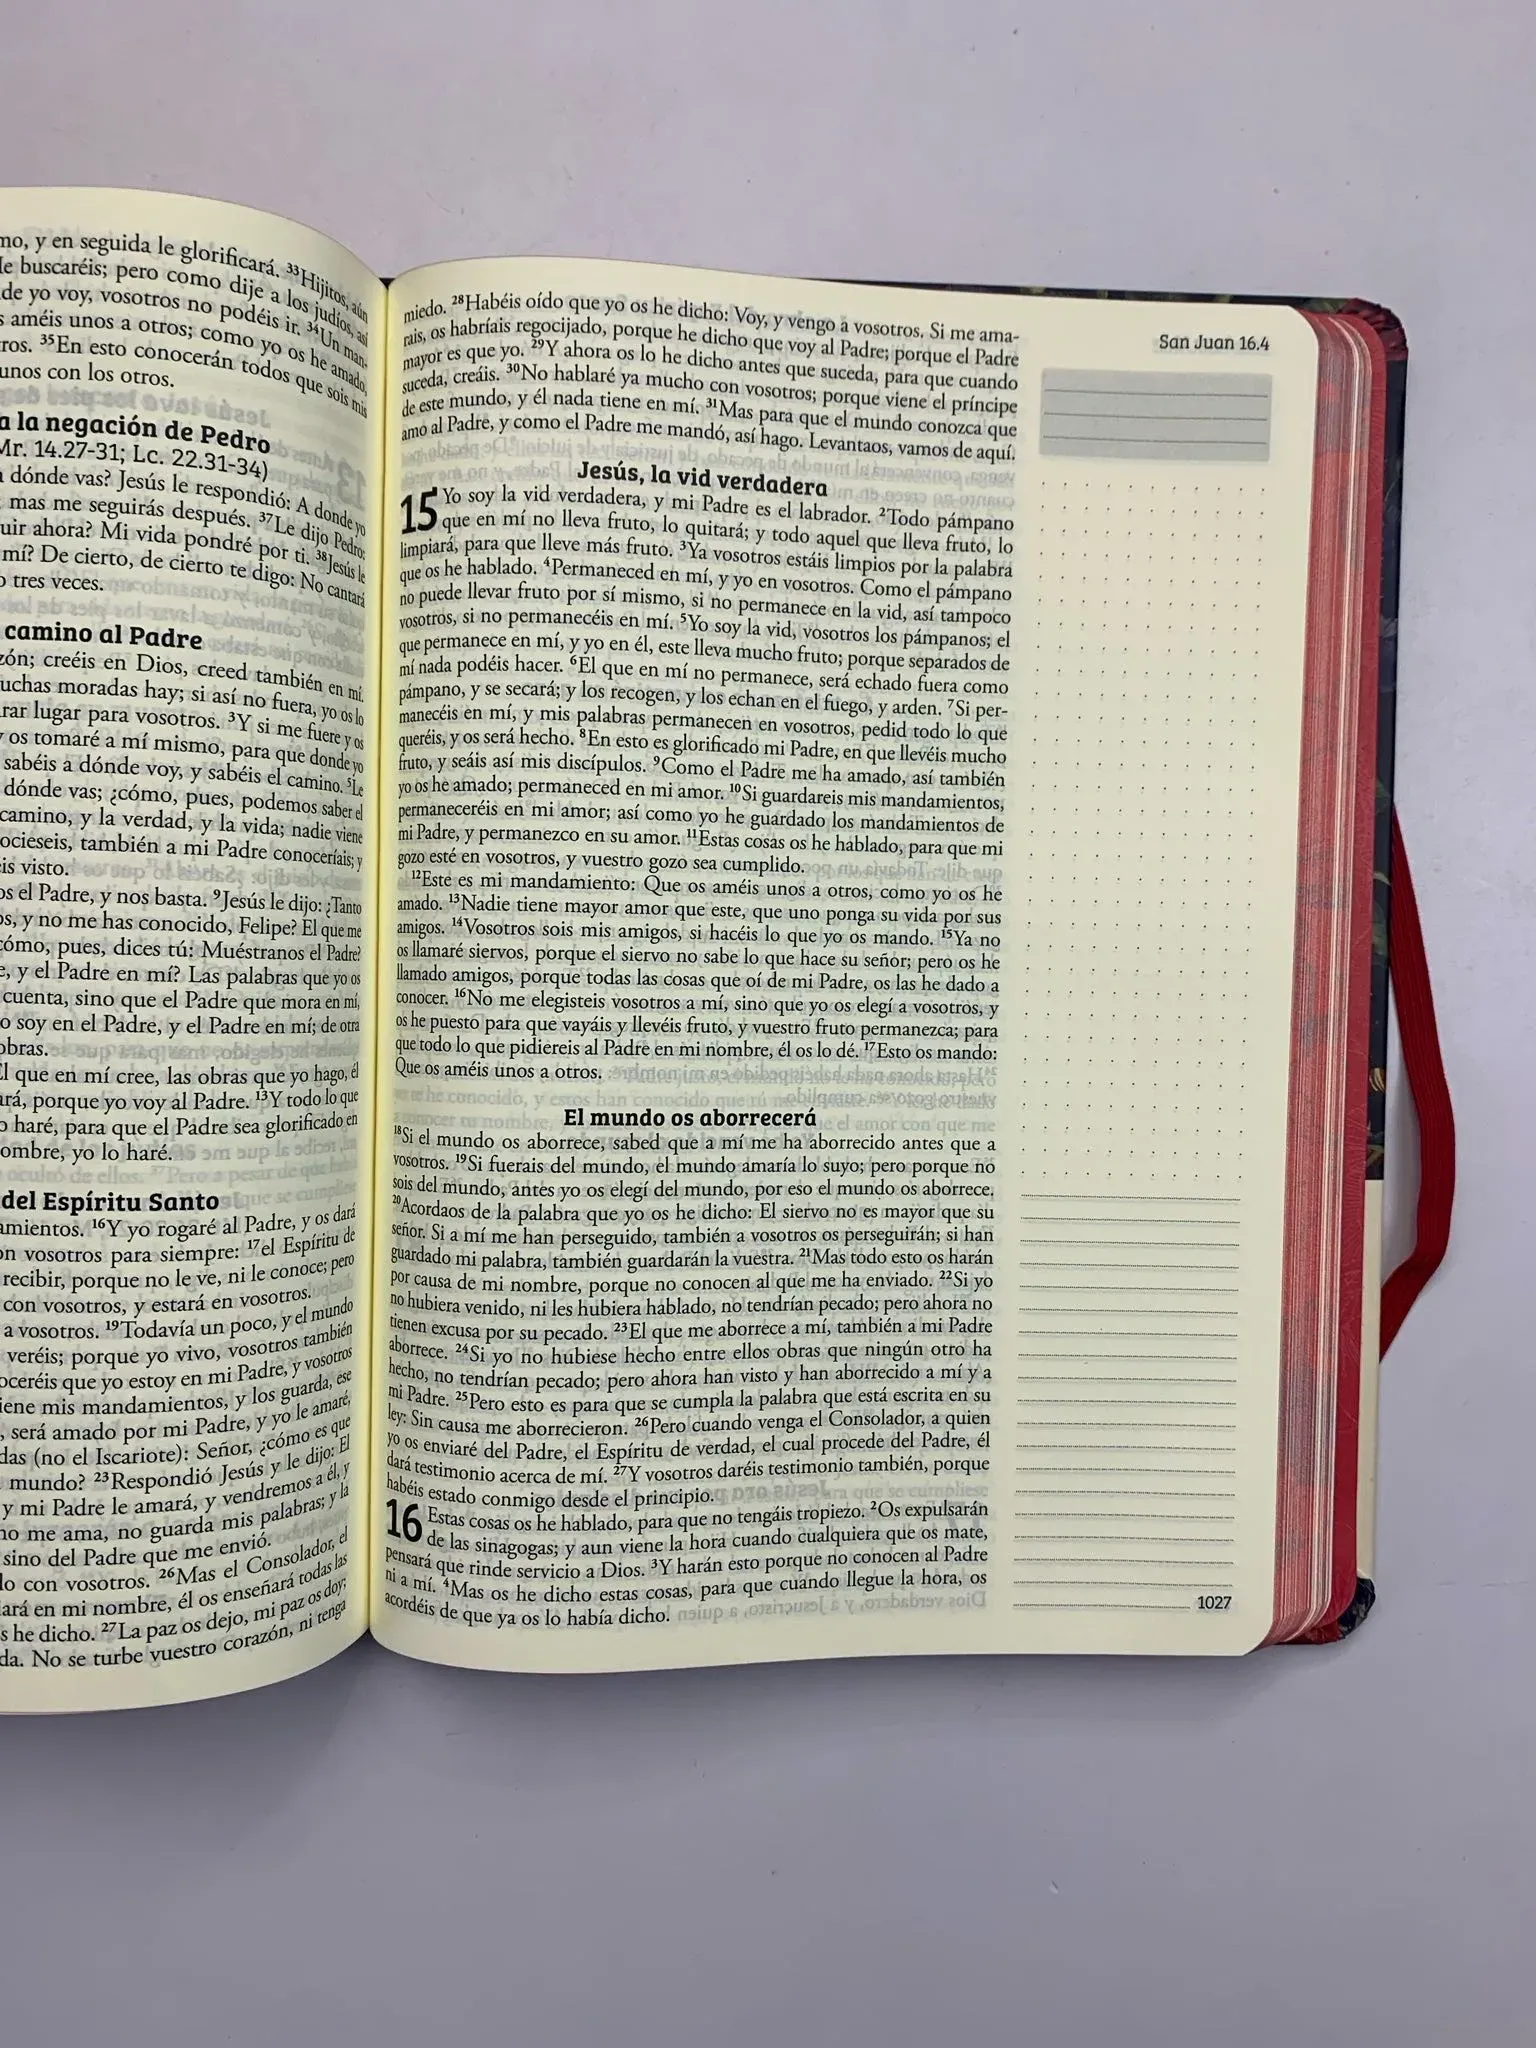 mo, y en seguida le glorificará. ³³Hijitos, aún
de yo voy, vosotros no podéis ir. ³⁴Un man-
s améis unos a otros; como yo os he amado,
ros. ³⁵En esto conocerán todos que sois mis
unos con los otros.
a la negación de Pedro
Mr. 14.27-31; Lc. 22.31-34)
dónde vas? Jesús le respondió: A donde yo
mas me seguirás después. ³⁷Le dijo Pedro:
uir ahora? Mi vida pondré por ti. ³⁸Jesús le
mí? De cierto, de cierto te digo: No cantará
tres veces.
camino al Padre
zón; creéis en Dios, creed también en mí.
uchas moradas hay; si así no fuera, yo os lo
rar lugar para vosotros. ³Y si me fuere y os
y os tomaré a mí mismo, para que donde yo
sabéis a dónde voy, y sabéis el camino. ⁵Le
dónde vas; ¿cómo, pues, podemos saber el
camino, y la verdad, y la vida; nadie viene
ocieseis, también a mi Padre conoceríais; y
is visto.
os el Padre, y nos basta. ⁹Jesús le dijo: ¿Tanto
os, y no me has conocido, Felipe? El que me
cómo, pues, dices tú: Muéstranos el Padre?
e, y el Padre en mí? Las palabras que yo os
cuenta, sino que el Padre que mora en mí,
o soy en el Padre, y el Padre en mí; de otra
obras.
El que en mí cree, las obras que yo hago, él
ará, porque yo voy al Padre. ¹³Y todo lo que
o haré, para que el Padre sea glorificado en
ombre, yo lo haré.
del Espíritu Santo
amientos. ¹⁶Y yo rogaré al Padre, y os dará
on vosotros para siempre: ¹⁷el Espíritu de
recibir, porque no le ve, ni le conoce; pero
con vosotros, y estará en vosotros.
a vosotros. ¹⁹Todavía un poco, y el mundo
veréis; porque yo vivo, vosotros también
oceréis que yo estoy en mi Padre, y vosotros
iene mis mandamientos, y los guarda, ese
, será amado por mi Padre, y yo le amaré,
das (no el Iscariote): Señor, ¿cómo es que
mundo? ²³Respondió Jesús y le dijo: El
y mi Padre le amará, y vendremos a él, y
no me ama, no guarda mis palabras; y la
sino del Padre que me envió.
do con vosotros. ²⁶Mas el Consolador, el
iará en mi nombre, él os enseñará todas las
s he dicho. ²⁷La paz os dejo, mi paz os doy;
da. No se turbe vuestro corazón, ni tenga
San Juan 16.4
miedo. ²⁸Habéis oído que yo os he dicho: Voy, y vengo a vosotros. Si me ama-
rais, os habríais regocijado, porque he dicho que voy al Padre; porque el Padre
mayor es que yo. ²⁹Y ahora os lo he dicho antes que suceda, para que cuando
suceda, creáis. ³⁰No hablaré ya mucho con vosotros; porque viene el príncipe
de este mundo, y él nada tiene en mí. ³¹Mas para que el mundo conozca que
amo al Padre, y como el Padre me mandó, así hago. Levantaos, vamos de aquí.
Jesús, la vid verdadera
15 Yo soy la vid verdadera, y mi Padre es el labrador. ²Todo pámpano
que en mí no lleva fruto, lo quitará; y todo aquel que lleva fruto, lo
limpiará, para que lleve más fruto. ³Ya vosotros estáis limpios por la palabra
que os he hablado. ⁴Permaneced en mí, y yo en vosotros. Como el pámpano
no puede llevar fruto por sí mismo, si no permanece en la vid, así tampoco
vosotros, si no permanecéis en mí. ⁵Yo soy la vid, vosotros los pámpanos; el
que permanece en mí, y yo en él, este lleva mucho fruto; porque separados de
mí nada podéis hacer. ⁶El que en mí no permanece, será echado fuera como
pámpano, y se secará; y los recogen, y los echan en el fuego, y arden. ⁷Si per-
manecéis en mí, y mis palabras permanecen en vosotros, pedid todo lo que
queréis, y os será hecho. ⁸En esto es glorificado mi Padre, en que llevéis mucho
fruto, y seáis así mis discípulos. ⁹Como el Padre me ha amado, así también
yo os he amado; permaneced en mi amor. ¹⁰Si guardareis mis mandamientos,
permaneceréis en mi amor; así como yo he guardado los mandamientos de
mi Padre, y permanezco en su amor. ¹¹Estas cosas os he hablado, para que mi
gozo esté en vosotros, y vuestro gozo sea cumplido.
¹²Este es mi mandamiento: Que os améis unos a otros, como yo os he
amado. ¹³Nadie tiene mayor amor que este, que uno ponga su vida por sus
amigos. ¹⁴Vosotros sois mis amigos, si hacéis lo que yo os mando. ¹⁵Ya no
os llamaré siervos, porque el siervo no sabe lo que hace su señor; pero os he
llamado amigos, porque todas las cosas que oí de mi Padre, os las he dado a
conocer. ¹⁶No me elegisteis vosotros a mí, sino que yo os elegí a vosotros, y
os he puesto para que vayáis y llevéis fruto, y vuestro fruto permanezca; para
que todo lo que pidiereis al Padre en mi nombre, él os lo dé. ¹⁷Esto os mando:
Que os améis unos a otros.
El mundo os aborrecerá
¹⁸Si el mundo os aborrece, sabed que a mí me ha aborrecido antes que a
vosotros. ¹⁹Si fuerais del mundo, el mundo amaría lo suyo; pero porque no
sois del mundo, antes yo os elegí del mundo, por eso el mundo os aborrece.
²⁰Acordaos de la palabra que yo os he dicho: El siervo no es mayor que su
señor. Si a mí me han perseguido, también a vosotros os perseguirán; si han
guardado mi palabra, también guardarán la vuestra. ²¹Mas todo esto os harán
por causa de mi nombre, porque no conocen al que me ha enviado. ²²Si yo
no hubiera venido, ni les hubiera hablado, no tendrían pecado; pero ahora no
tienen excusa por su pecado. ²³El que me aborrece a mí, también a mi Padre
aborrece. ²⁴Si yo no hubiese hecho entre ellos obras que ningún otro ha
hecho, no tendrían pecado; pero ahora han visto y han aborrecido a mí y a
mi Padre. ²⁵Pero esto es para que se cumpla la palabra que está escrita en su
ley: Sin causa me aborrecieron. ²⁶Pero cuando venga el Consolador, a quien
yo os enviaré del Padre, el Espíritu de verdad, el cual procede del Padre, él
dará testimonio acerca de mí. ²⁷Y vosotros daréis testimonio también, porque
habéis estado conmigo desde el principio.
16 Estas cosas os he hablado, para que no tengáis tropiezo. ²Os expulsarán
de las sinagogas; y aun viene la hora cuando cualquiera que os mate,
pensará que rinde servicio a Dios. ³Y harán esto porque no conocen al Padre
ni a mí. ⁴Mas os he dicho estas cosas, para que cuando llegue la hora, os
acordéis de que ya os lo había dicho.
1027